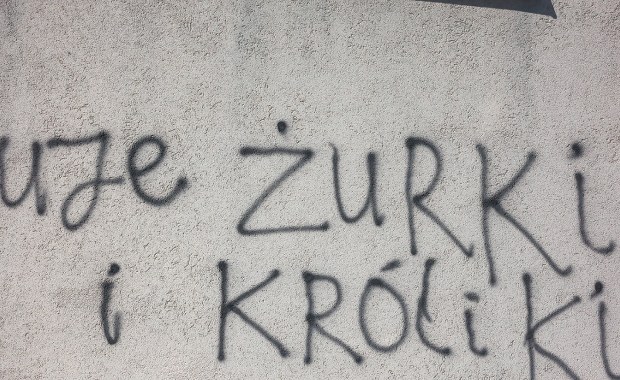 uje ŻURKi
i KRÓliki